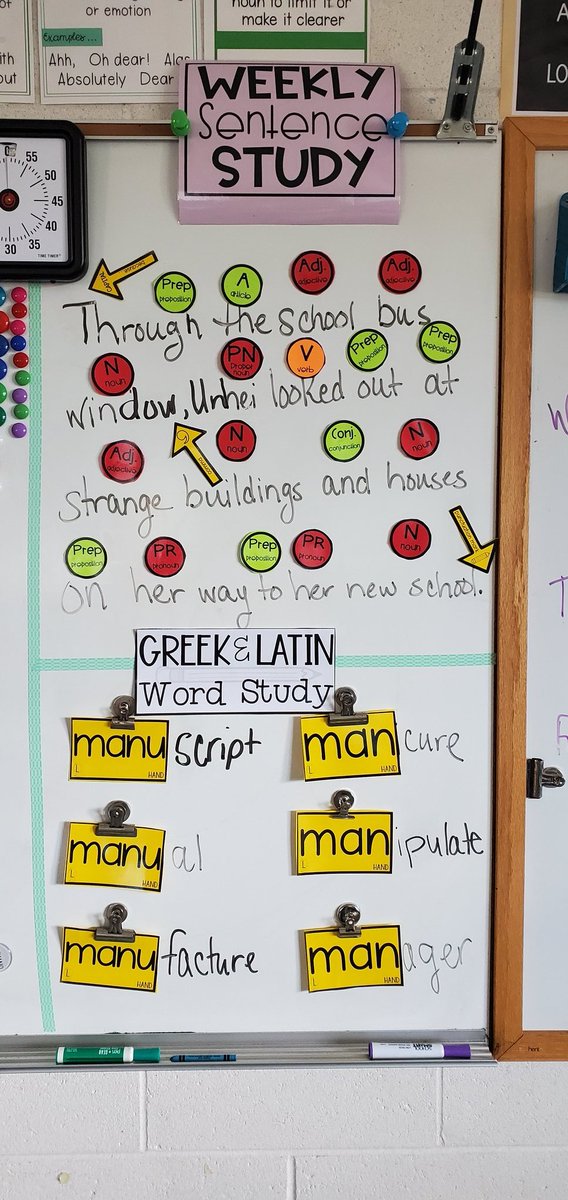 or emotion
Examples...
Ahh, Oh dear! Alas
Absolutely Dear
noun to limit it or
make it clearer
A
LO
WEEKLY
Sentence
STUDY
55
50
45
40
35
30
TIME TIMER
Prep preposition A article Adj. adjective Adj. adjective
Through the school bus
N noun PN Proper noun V verb Prep preposition Prep preposition
window, Unhei looked out at
Adj. adjective N noun Conj. conjunction N noun
strange buildings and houses
Prep preposition PR pronoun Prep preposition PR pronoun N noun
on her way to her new school.
GREEK & LATIN
Word Study
manuscript L HAND
mancure L HAND
manual L HAND
manipulate L HAND
manufacture L HAND
manager L HAND